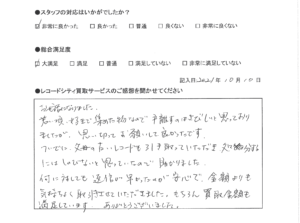 ●スタッフの対応はいかがでしたか？
☑非常に良かった □良かった □普通 □良くない □非常に良くない
●総合満足度
☑大満足 □満足 □普通 □満足していない □非常に満足していない
記入日2021年10月10日
●レコードシティ買取サービスのご感想をお聞かせください
お世話になりました。
若い頃、好きで集めた物なので手離すのはさびしいと思っており
ましたが、思い切ってお願いして良かったです。
ついでに父母の古いレコードも引き取っていただき、
にはしのびないと思っていたので助かりました。
何につけても返信が早かったのが安心で、金額よりも
気持ちよく取引させていただきました。もちろん買取金額も
満足しています。ありがとうございました。